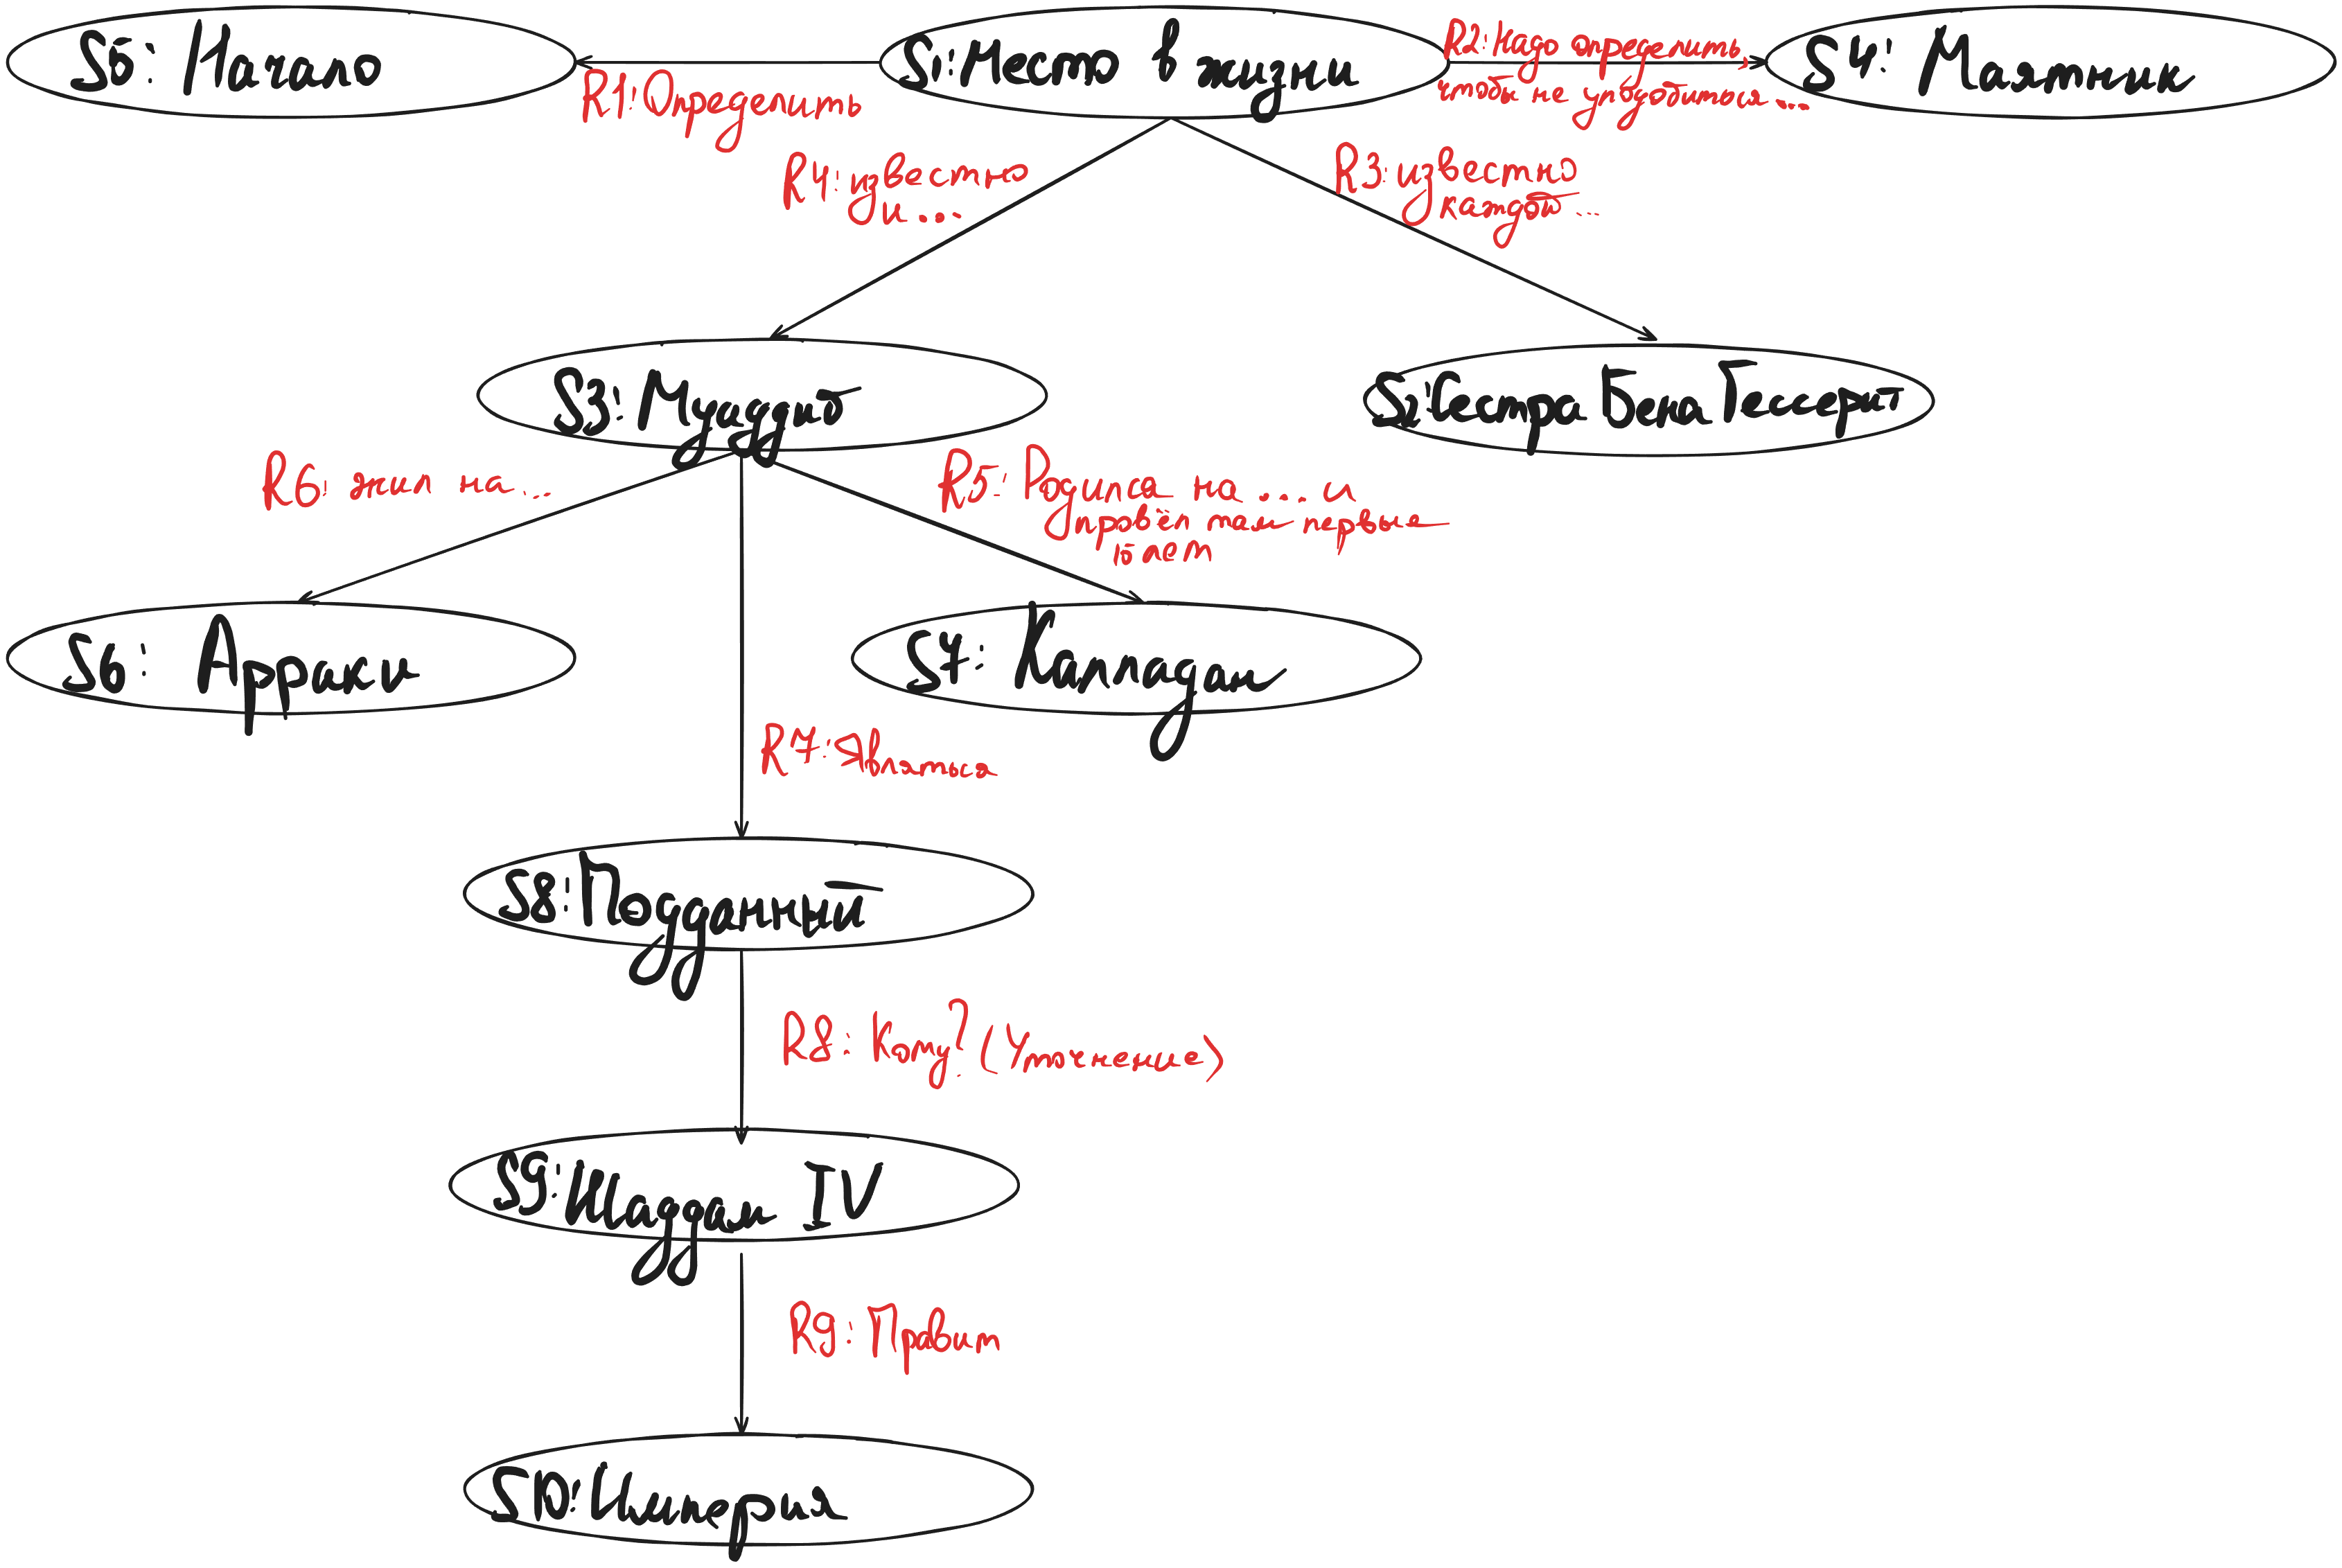 S5: Начало
S1: Место в жизни
R2: Надо определить,
чтобы не уподобиться ...
S4: Маятник
R1: Определить
R4: известно
и ...
R3: известно
каждой ...
S3: Муаддиб
S2: Сестра Бена Гессерит
R6: жил на ...
R5: Родился на ... и
провёл там первые
15 лет
S6: Арраки
S7: Калладан
R7: Являться
S8: Подданный
R8: Кому? (Уточнение)
S9: Шаддам IV
R9: Правит
S10: Империя